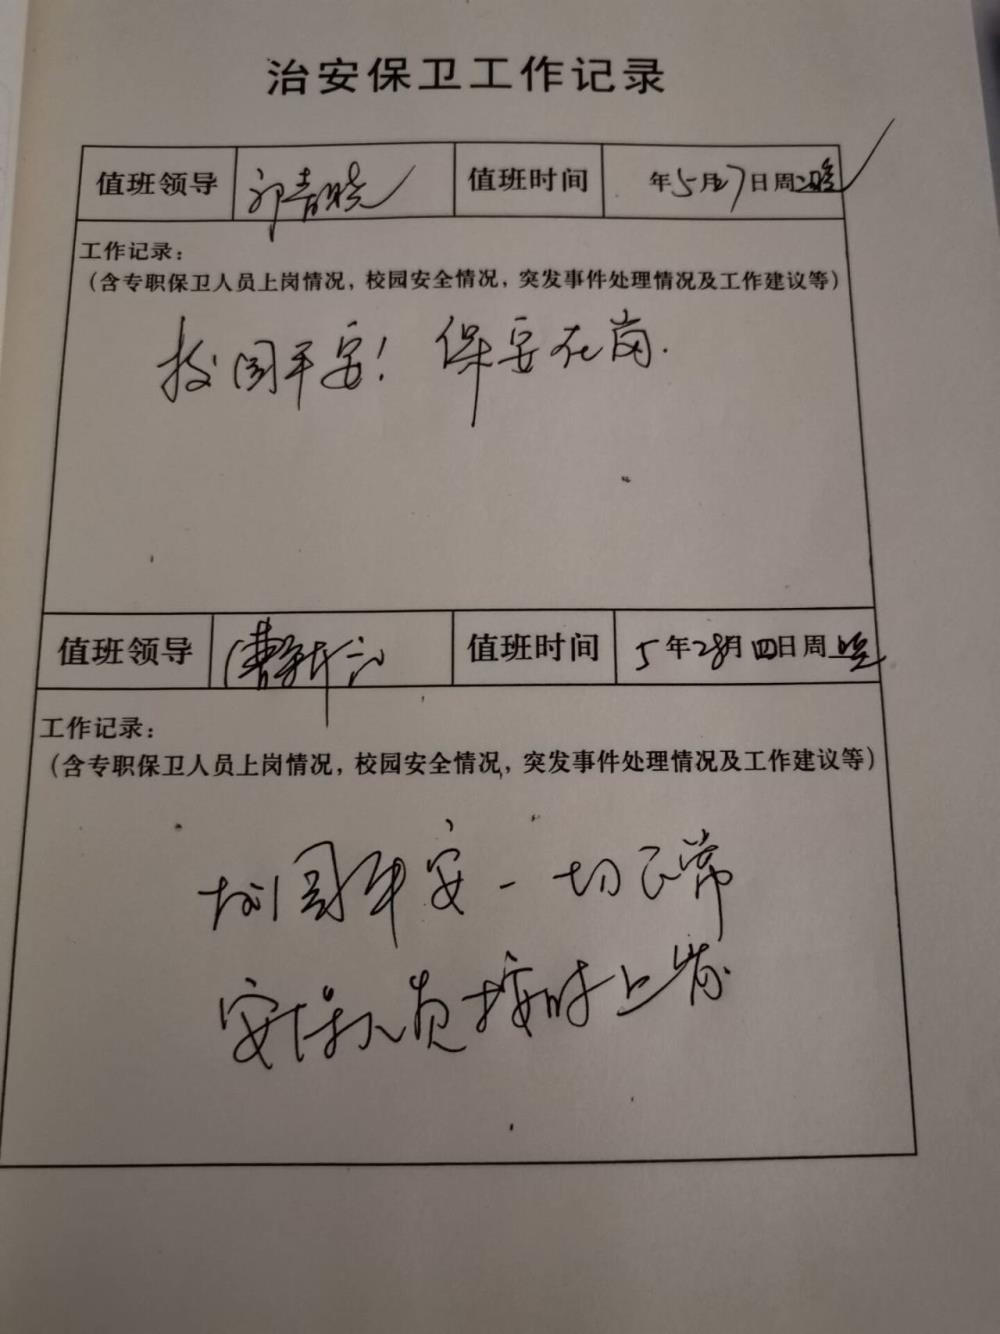 治安保卫工作记录
值班领导 值班时间 年5月27日周三晚
工作记录：
（含专职保卫人员上岗情况，校园安全情况，突发事件处理情况及工作建议等）
校园平安！保安在岗.
值班领导 值班时间 5年28月四日周晚
工作记录：
（含专职保卫人员上岗情况，校园安全情况，突发事件处理情况及工作建议等）
校园平安一切正常
安保人员按时上岗.